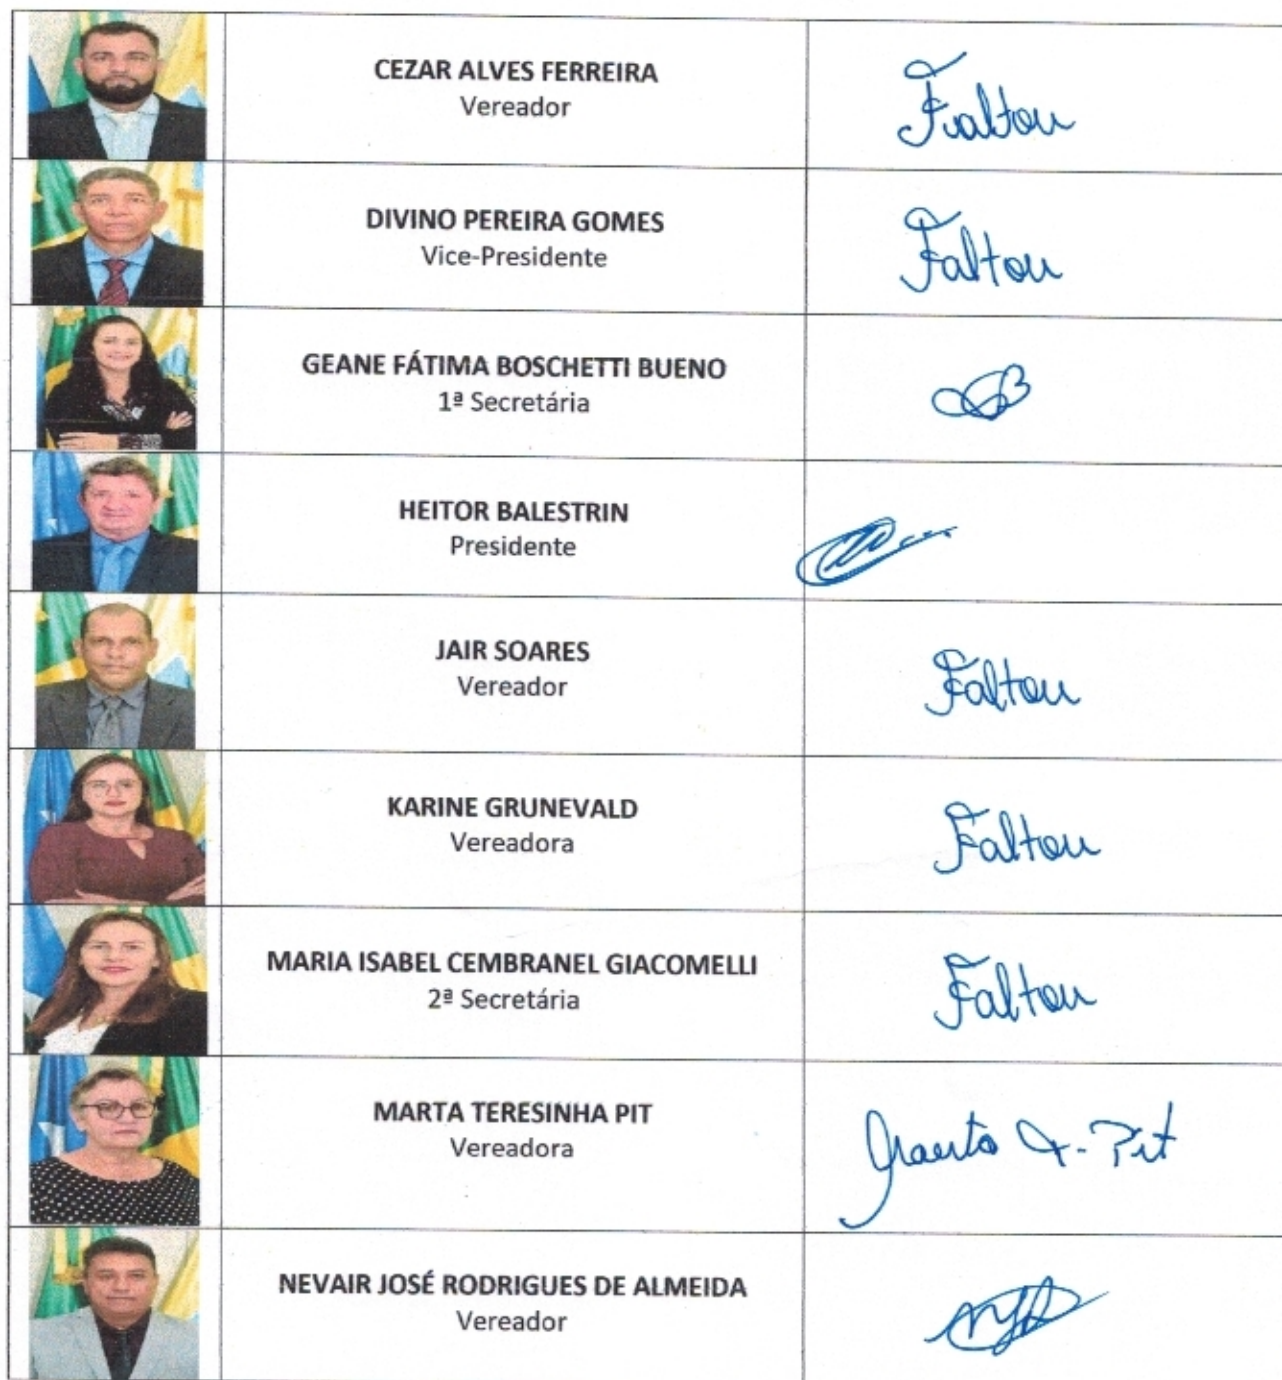 CEZAR ALVES FERREIRA
Vereador
Faltou
DIVINO PEREIRA GOMES
Vice-Presidente
Faltou
GEANE FÁTIMA BOSCHETTI BUENO
1ª Secretária
HEITOR BALESTRIN
Presidente
JAIR SOARES
Vereador
Faltou
KARINE GRUNEVALD
Vereadora
Faltou
MARIA ISABEL CEMBRANEL GIACOMELLI
2ª Secretária
Faltou
MARTA TERESINHA PIT
Vereadora
Marta T. Pit
NEVAIR JOSÉ RODRIGUES DE ALMEIDA
Vereador